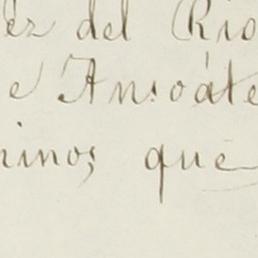 ez del Rio
e Ansoáte
minos que